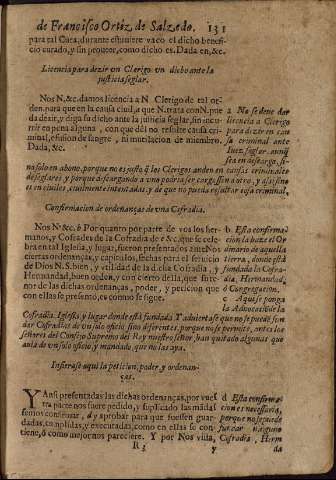 de Francisco Ortiz de Salzedo. 131
para tal Cura, durante estuviere vaco el dicho benefi-
cio curado, y sin proveer, como dicho es. Dada en, &c.
Licencia para dezir un Clerigo un dicho ante la
justicia seglar.
Nos N. &c. damos licencia a N. Clerigo de tal or-
den, para que en la causa civil, a que N. trata con N. pue
da dezir, y diga su dicho ante la justicia seglar, sin incu-
rrir en pena alguna, con que dèl no resulte causa cri-
minal, efusion de sangre, ni mutilacion de miembro.
Dada, &c.
a No se de dar
licencia a Clerigo
para dezir en cau
sa criminal ante
Juez seglar, aunq̃
sea en descargo, si-
no solo en abono, porque no es justo q̃ los Clerigos anden en causas criminales
de seglares, y porque descargando a uno podria ser cargassen a otro, y assi sino
es en civiles, civilmente intentadas, y de que no pueda resultar cosa criminal,
Confirmacion de ordenanças de una Cofradia.
Nos N. &c. b Por quanto por parte de vos los her-
manos, y Cofrades de la Cofradia de c &c. que se cele-
bra en tal Iglesia, y lugar, fueron presentados ante Nos
ciertas ordenanças, y capitulos, fechas para el servicio
de Dios N. S. bien, y utilidad de la dicha Cofradia, y
Hermandad, buen orden, y concierto della, que su te-
nor de las dichas ordenanças, poder, y peticion que
con ellas se presentò, es como se sigue.
b Esta confirma-
cion la haze el Or
dinario de aquella
tierra, donde està
fundada la Cofra-
dia, Hermandad,
o Congregacion.
c Aqui se ponga
la Advocacion de la
Cofradia, Iglesia, y lugar donde està fundada. Y adviertase que no se puede fun
dar Cofradias de un solo oficio, sino diferentes, porque no se permite, antes los
señores del Consejo Supremo del Rey nuestro señor, han quitado algunas que
avia de un solo oficio, y mandado, que no las aya.
Insertase aqui la peticion, poder, y ordenan-
ças.
Y Ansi presentadas las dichas ordenanças, por vues
tra parte nos fuere pedido, y suplicado las mãdas
semos confirmar, d y aprobar para que fuessen guar-
dadas, cumplidas, y executadas, como en ellas se con-
tiene, ò como mejor nos pareciere. Y por Nos vista,
d Esta confirma-
cion es necessaria,
porque no se puede
fundar ninguna
Cofradia, Herm
R 3 y da